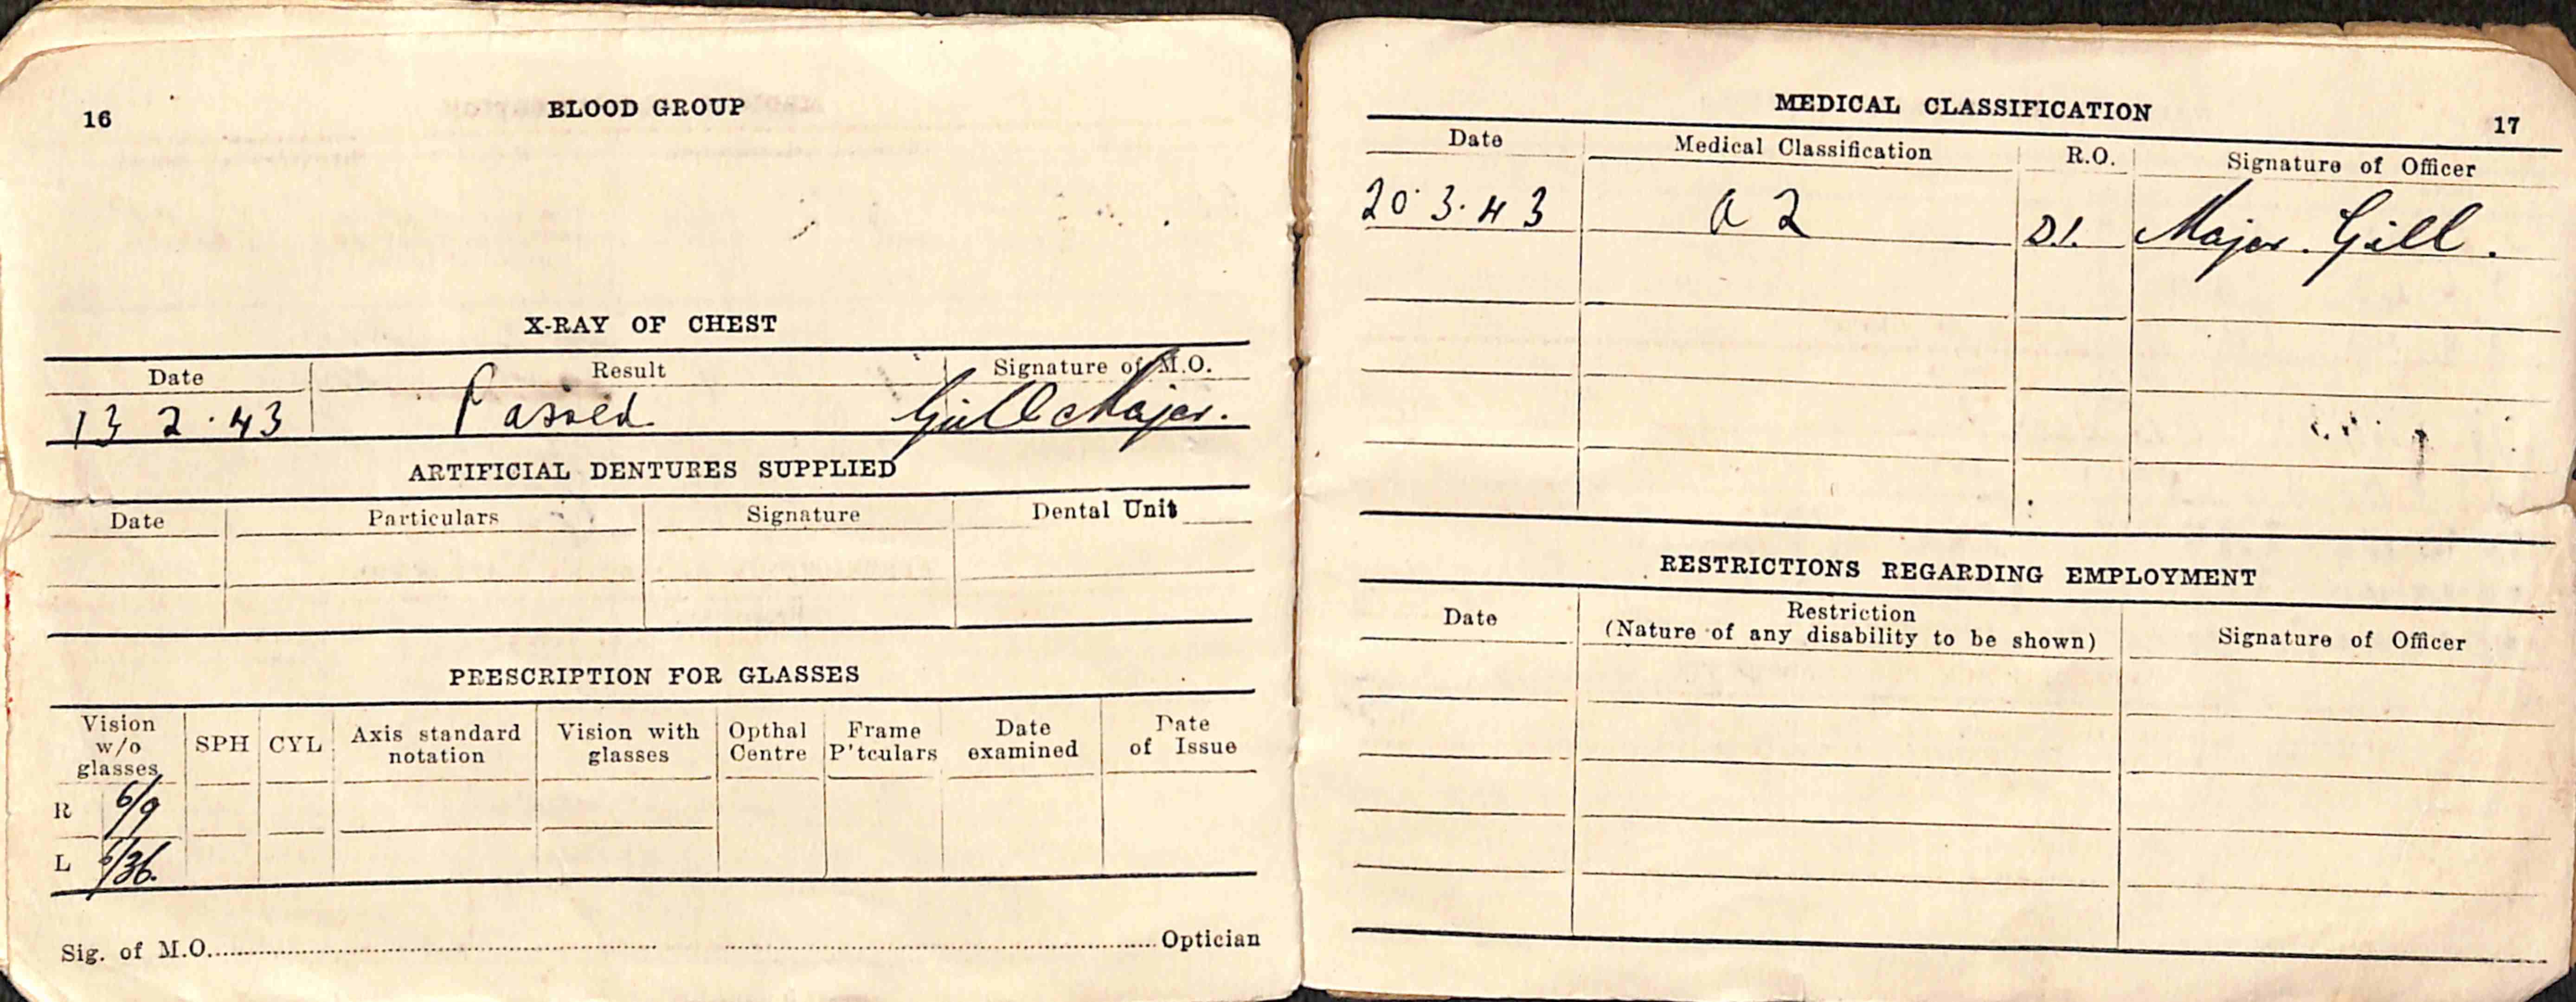 16
BLOOD GROUP
X-RAY OF CHEST
Date Result Signature of M.O.
13 2 · 43 Passed Gill Major.
ARTIFICIAL DENTURES SUPPLIED
Date Particulars Signature Dental Unit
PRESCRIPTION FOR GLASSES
Vision w/o glasses SPH CYL Axis standard notation Vision with glasses Opthal Centre Frame P'tculars Date examined Date of Issue
R 6/9
L 6/36.
Sig. of M.O. Optician
MEDICAL CLASSIFICATION
17
Date Medical Classification R.O. Signature of Officer
20·3·43 A2 D.1. Major. Gill.
RESTRICTIONS REGARDING EMPLOYMENT
Date Restriction Signature of Officer
(Nature of any disability to be shown)